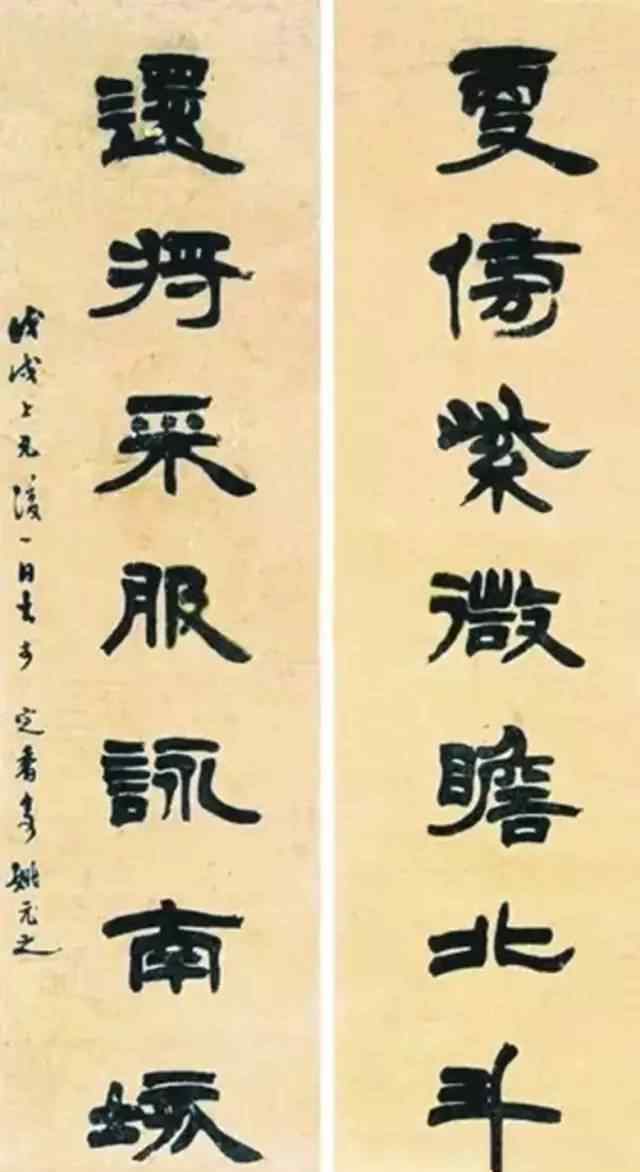 更傍紫微瞻北斗
還將采服詠南陔
戊戌上元後一日書 定香 姚元之